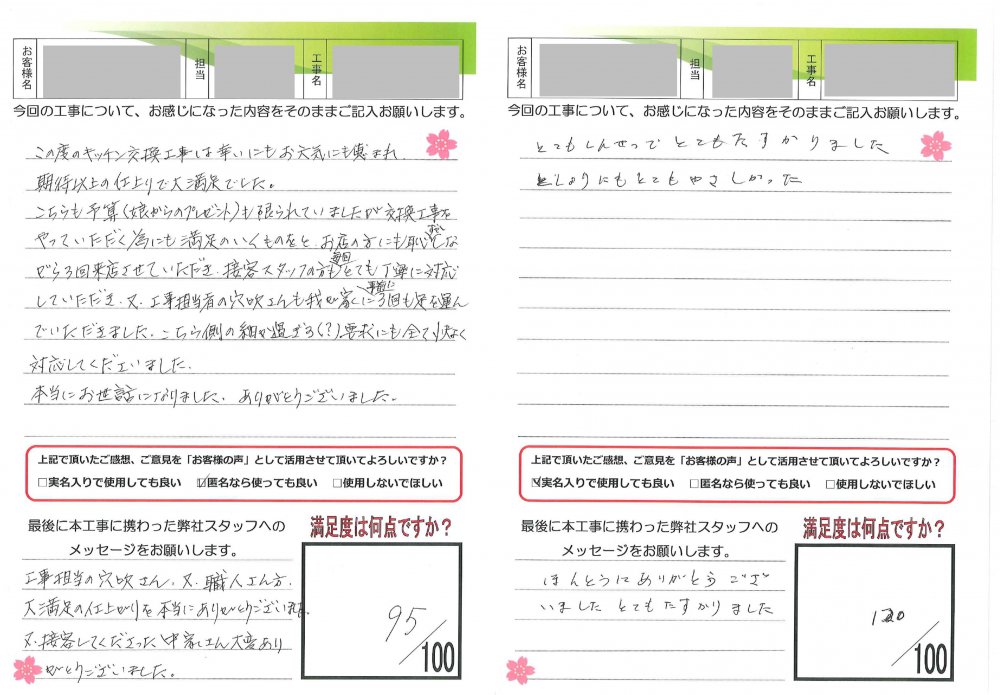 お客様名
担当
工事名
今回の工事について、お感じになった内容をそのままご記入お願いします。
この度のキッチン交換工事は幸いにもお天気にも恵まれ
期待以上の仕上りで大満足でした。
こちらも予算(娘からのプレゼント)も限られていましたが交換工事を
やっていただく為にも満足のいくものをと、お店の方にも恥し
な
がら3回来店させていただき、接客スタッフの方も毎回とても丁寧に対応
していただき、又、工事担当者の穴吹さんも我が家に事前に3回も足を運ん
でいただきました。こちら側の細か過ぎる(?)要求にも全て
対応してくださいました。
本当にお世話になりました。ありがとうございました。
上記で頂いたご感想、ご意見を「お客様の声」として活用させて頂いてよろしいですか?
□実名入りで使用しても良い ☑匿名なら使っても良い □使用しないでほしい
最後に本工事に携わった弊社スタッフへの
メッセージをお願いします。
工事担当の穴吹さん、又、職人さん方、
大満足の仕上がりを本当にありがとうございます。
又、接客してくださった中家さん大変あり
がとうございました。
満足度は何点ですか?
95/100
お客様名
担当
工事名
今回の工事について、お感じになった内容をそのままご記入お願いします。
とてもしんせつで とてもたすかりました
としよりにもとてもやさしかった
上記で頂いたご感想、ご意見を「お客様の声」として活用させて頂いてよろしいですか?
☑実名入りで使用しても良い □匿名なら使っても良い □使用しないでほしい
最後に本工事に携わった弊社スタッフへの
メッセージをお願いします。
ほんとうにありがとうござ
いました とてもたすかりました
満足度は何点ですか?
120/100